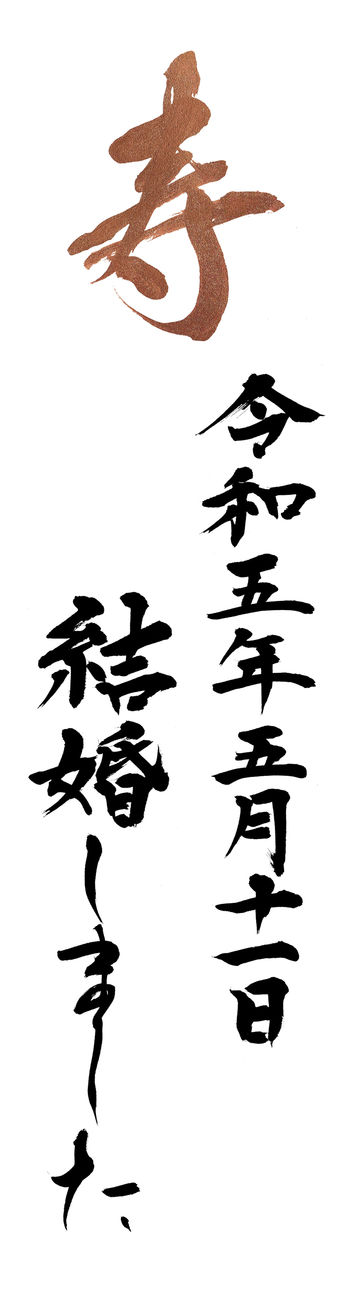 寿
令和五年五月十一日
結婚しました